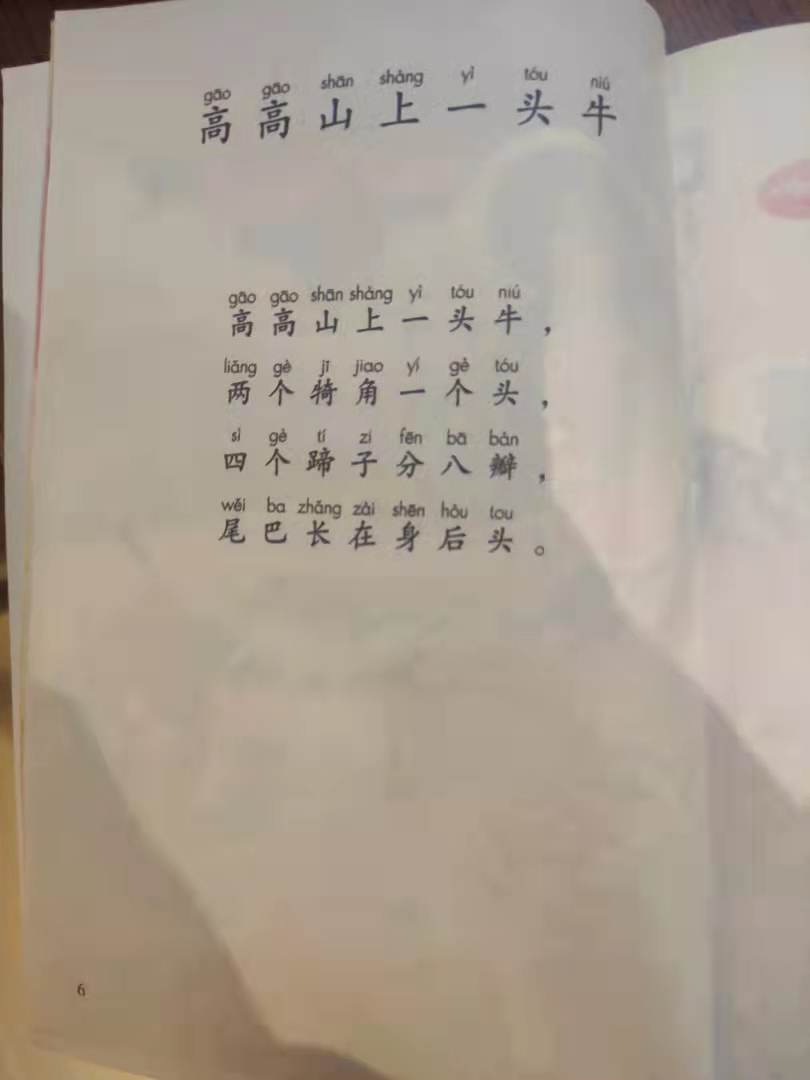 gāo gāo shān shàng yì tóu niú
高高山上一头牛
gāo gāo shān shàng yì tóu niú
高高山上一头牛，
liǎng gè jī jiao yí gè tóu
两个犄角一个头，
sì gè tí zi fēn bā bàn
四个蹄子分八瓣，
wěi ba zhǎng zài shēn hòu tou
尾巴长在身后头。
6